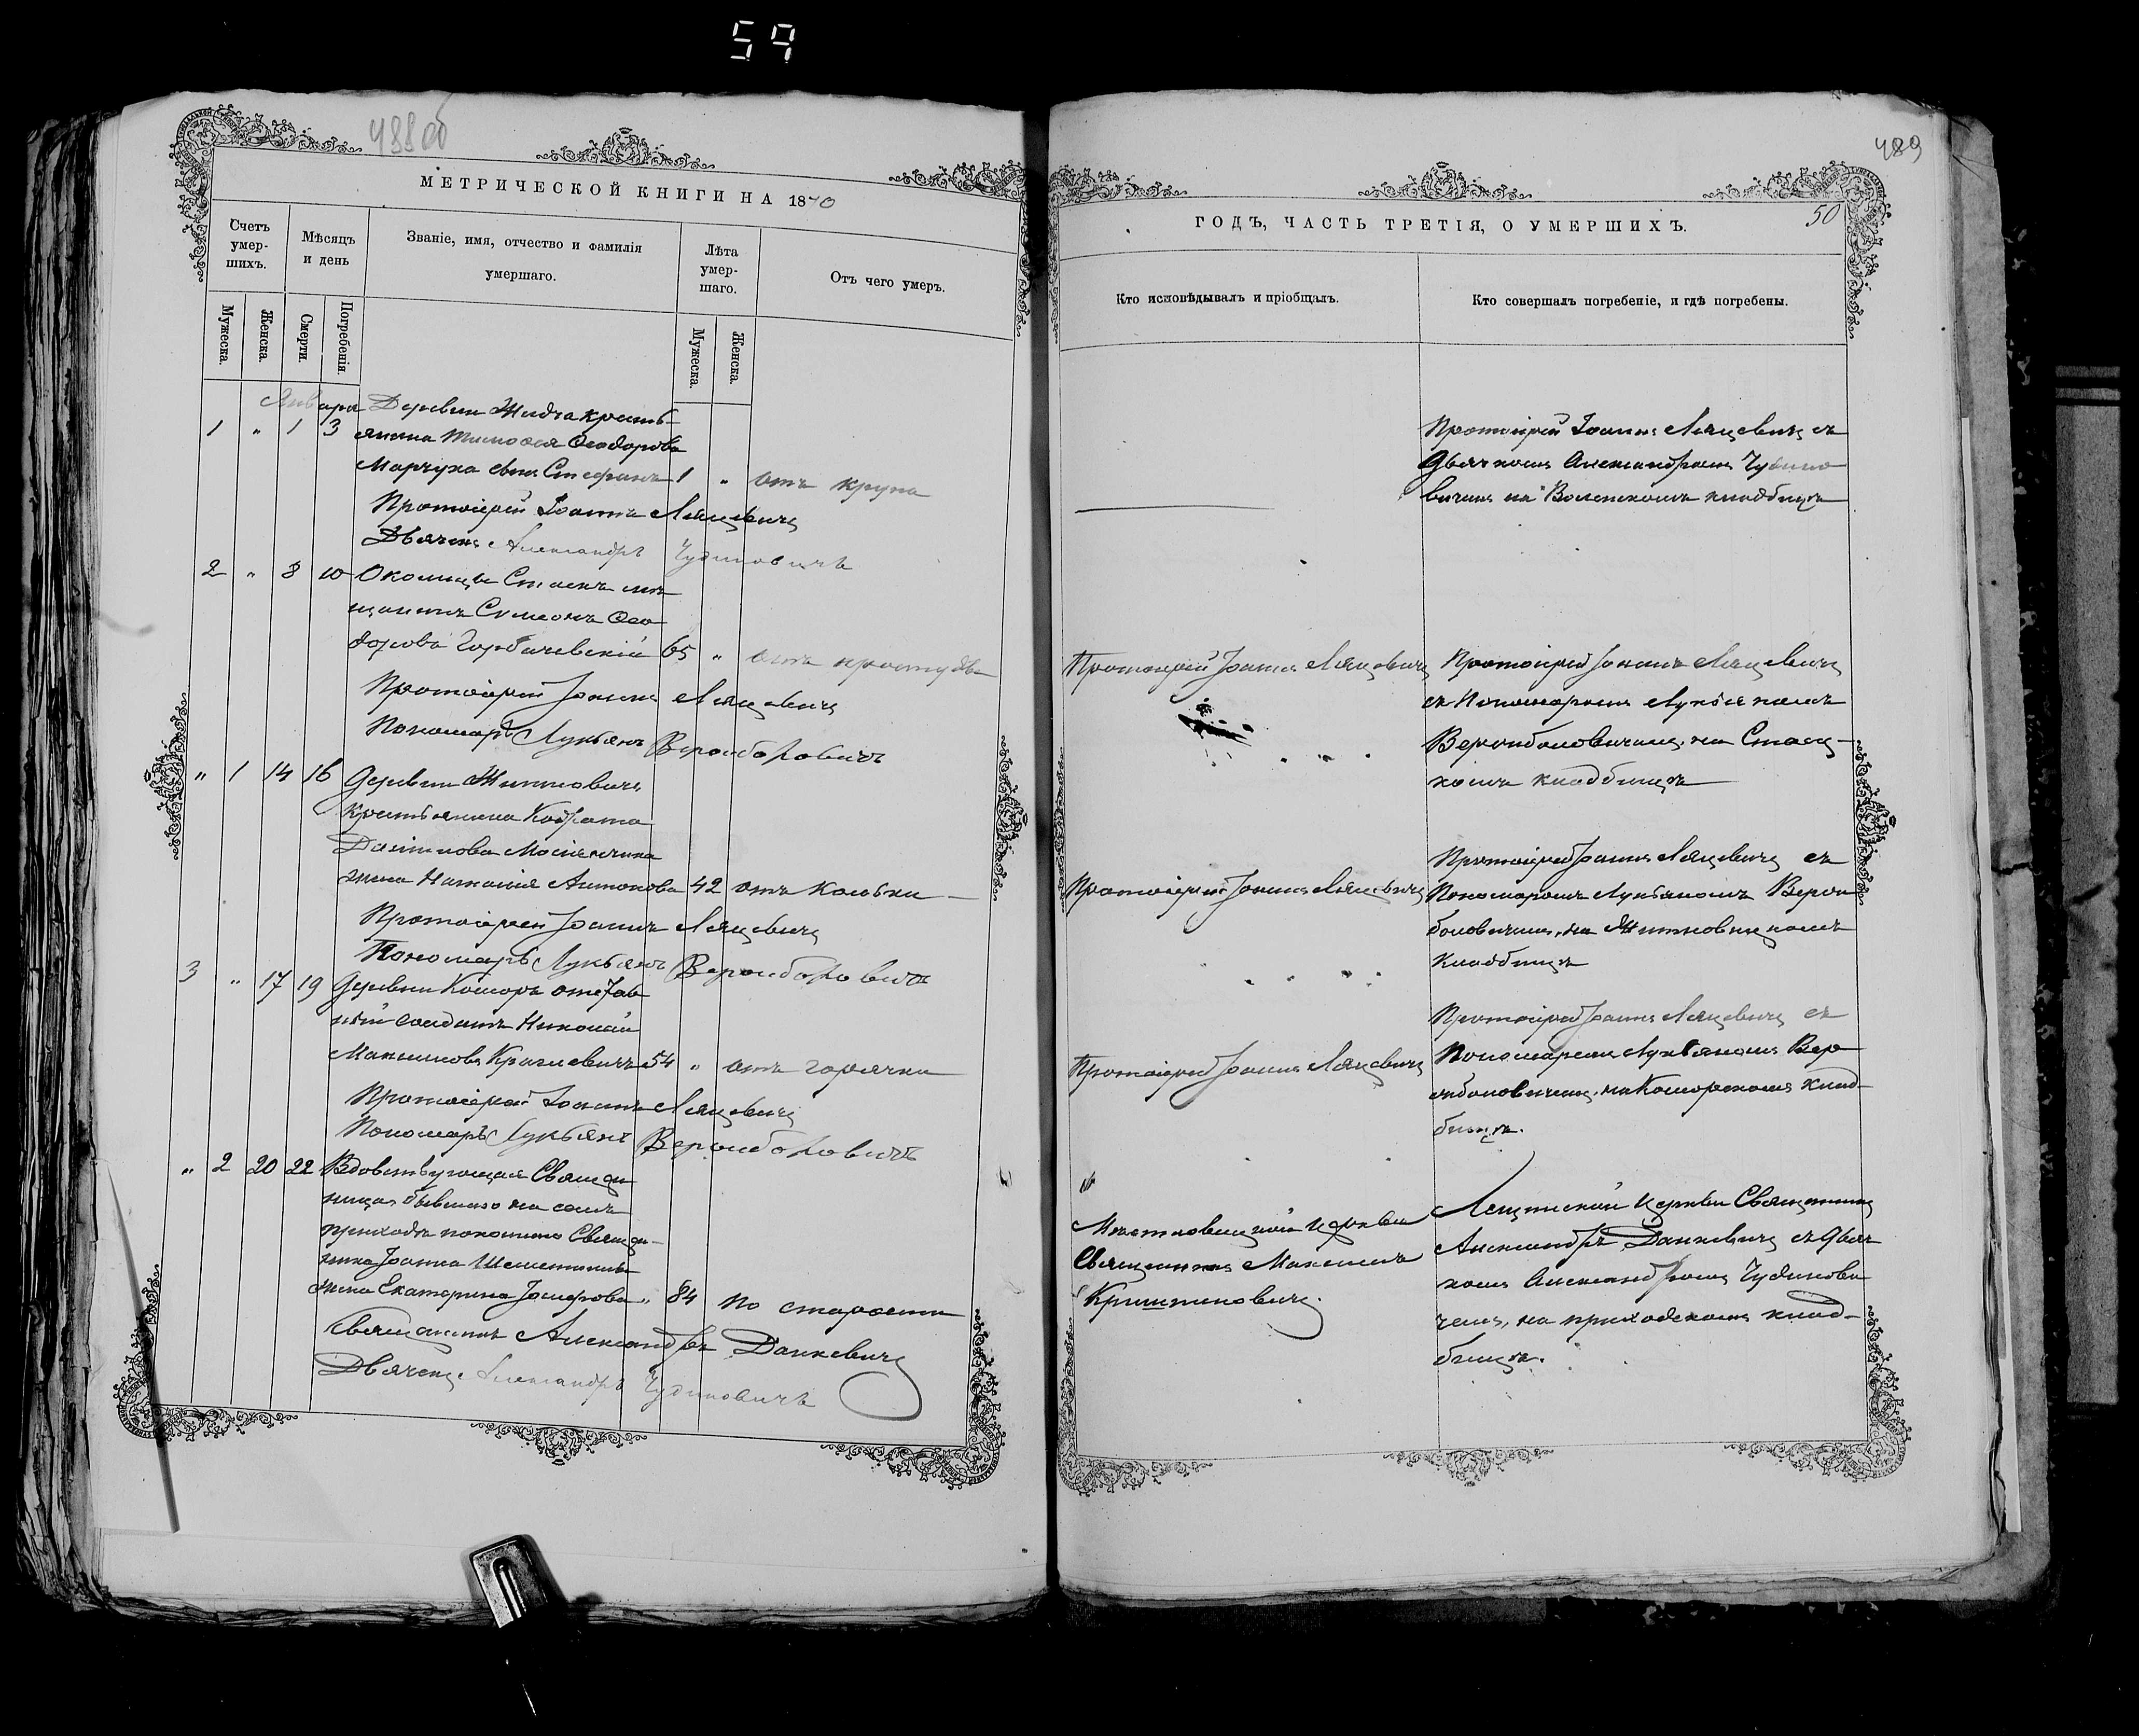 59
488об
МЕТРИЧЕСКОЙ КНИГИ НА 1870
Счетъ умер-шихъ.
Мѣсяцъ и день
Званіе, имя, отчество и фамилія умершаго.
Лѣта умер-шаго.
Отъ чего умеръ.
Мужеска.
Женска.
Смерти.
Погребенія.
Мужеска.
Женска.
Января
Деревни Жидча кресть-
1 " 1 3 янина Тимофея Ѳеодорова
Марчука сынъ Стефанъ 1 " отъ крупа
Протоіерей Іоаннъ Ляцевичъ
Дьячекъ Александръ Чудиновичъ
2 " 8 10 Околицы Стаекъ мѣ
щанинъ Симеонъ Ѳео
доровъ Горбачевскій 65 " отъ простуды
Протоіерей Іоаннъ Ляцевичъ
Пономарь Лукьянъ Верамболовичъ
" 1 14 16 Деревни Житковичъ
крестьянина Кодрата
жена Наталія Антонова 42 отъ колотья
Протоіерей Іоаннъ Ляцевичъ
Пономарь Лукьянъ Верамболовичъ
3 " 17 19 Деревни Коморъ отстав
ный солдатъ Николай
Максимовъ 54 " отъ горячки
Протоіерей Іоаннъ Ляцевичъ
Пономарь Лукьянъ Верамболовичъ
" 2 20 22 Вдовствующая Священ
ница бывшаго на семъ
приходѣ покойнаго Священ-
ника Іоанна
жена Екатерина Іосифова " 84 по старости
Священникъ Александръ Данкевичъ
Дьячекъ Александръ Чудиновичъ
489
50
ГОДЪ, ЧАСТЬ ТРЕТІЯ, О УМЕРШИХЪ.
Кто исповѣдывалъ и пріобщалъ.
Кто совершалъ погребеніе, и гдѣ погребены.
Протоіерей Іоаннъ Ляцевичъ съ
Дьячкомъ Александромъ Чудино
вичемъ на кладбищѣ
Протоіерей Іоаннъ Ляцевичъ
Протоіерей Іоаннъ Ляцевичъ
съ Пономаремъ Лукьяномъ
Верамболовичемъ, на Стаец-
комъ кладбищѣ
Протоіерей Іоаннъ Ляцевичъ
Протоіерей Іоаннъ Ляцевичъ съ
Пономаремъ Лукьяномъ Верам
боловичемъ, на Житковицкомъ
кладбищѣ
Протоіерей Іоаннъ Ляцевичъ
Протоіерей Іоаннъ Ляцевичъ съ
Пономаремъ Лукьяномъ Вер
амболовичемъ, на Коморскомъ клад-
бищѣ.
церкви
Священникъ Максимъ
церкви Священникъ
Александръ Данкевичъ съ Дьяч
комъ Александромъ Чудинови
чемъ, на приходскомъ клад-
бищѣ.